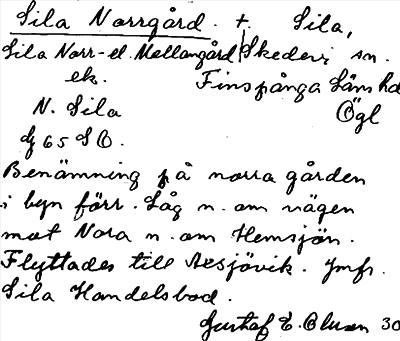 Sila Norrgård. +. Sila,
Sila Norr- el. Mellangård Skedevi sn.
ek. Finspånga läns hd
N. Sila Ögl
Gg 65 SO.
Benämning på norra gården
i byn förr. Låg n. om vägen
mot Nora n. om Hemsjön.
Flyttades till Aksjövik. Jmfr.
Sila Handelsbod.
Gustaf E. Olsson 30